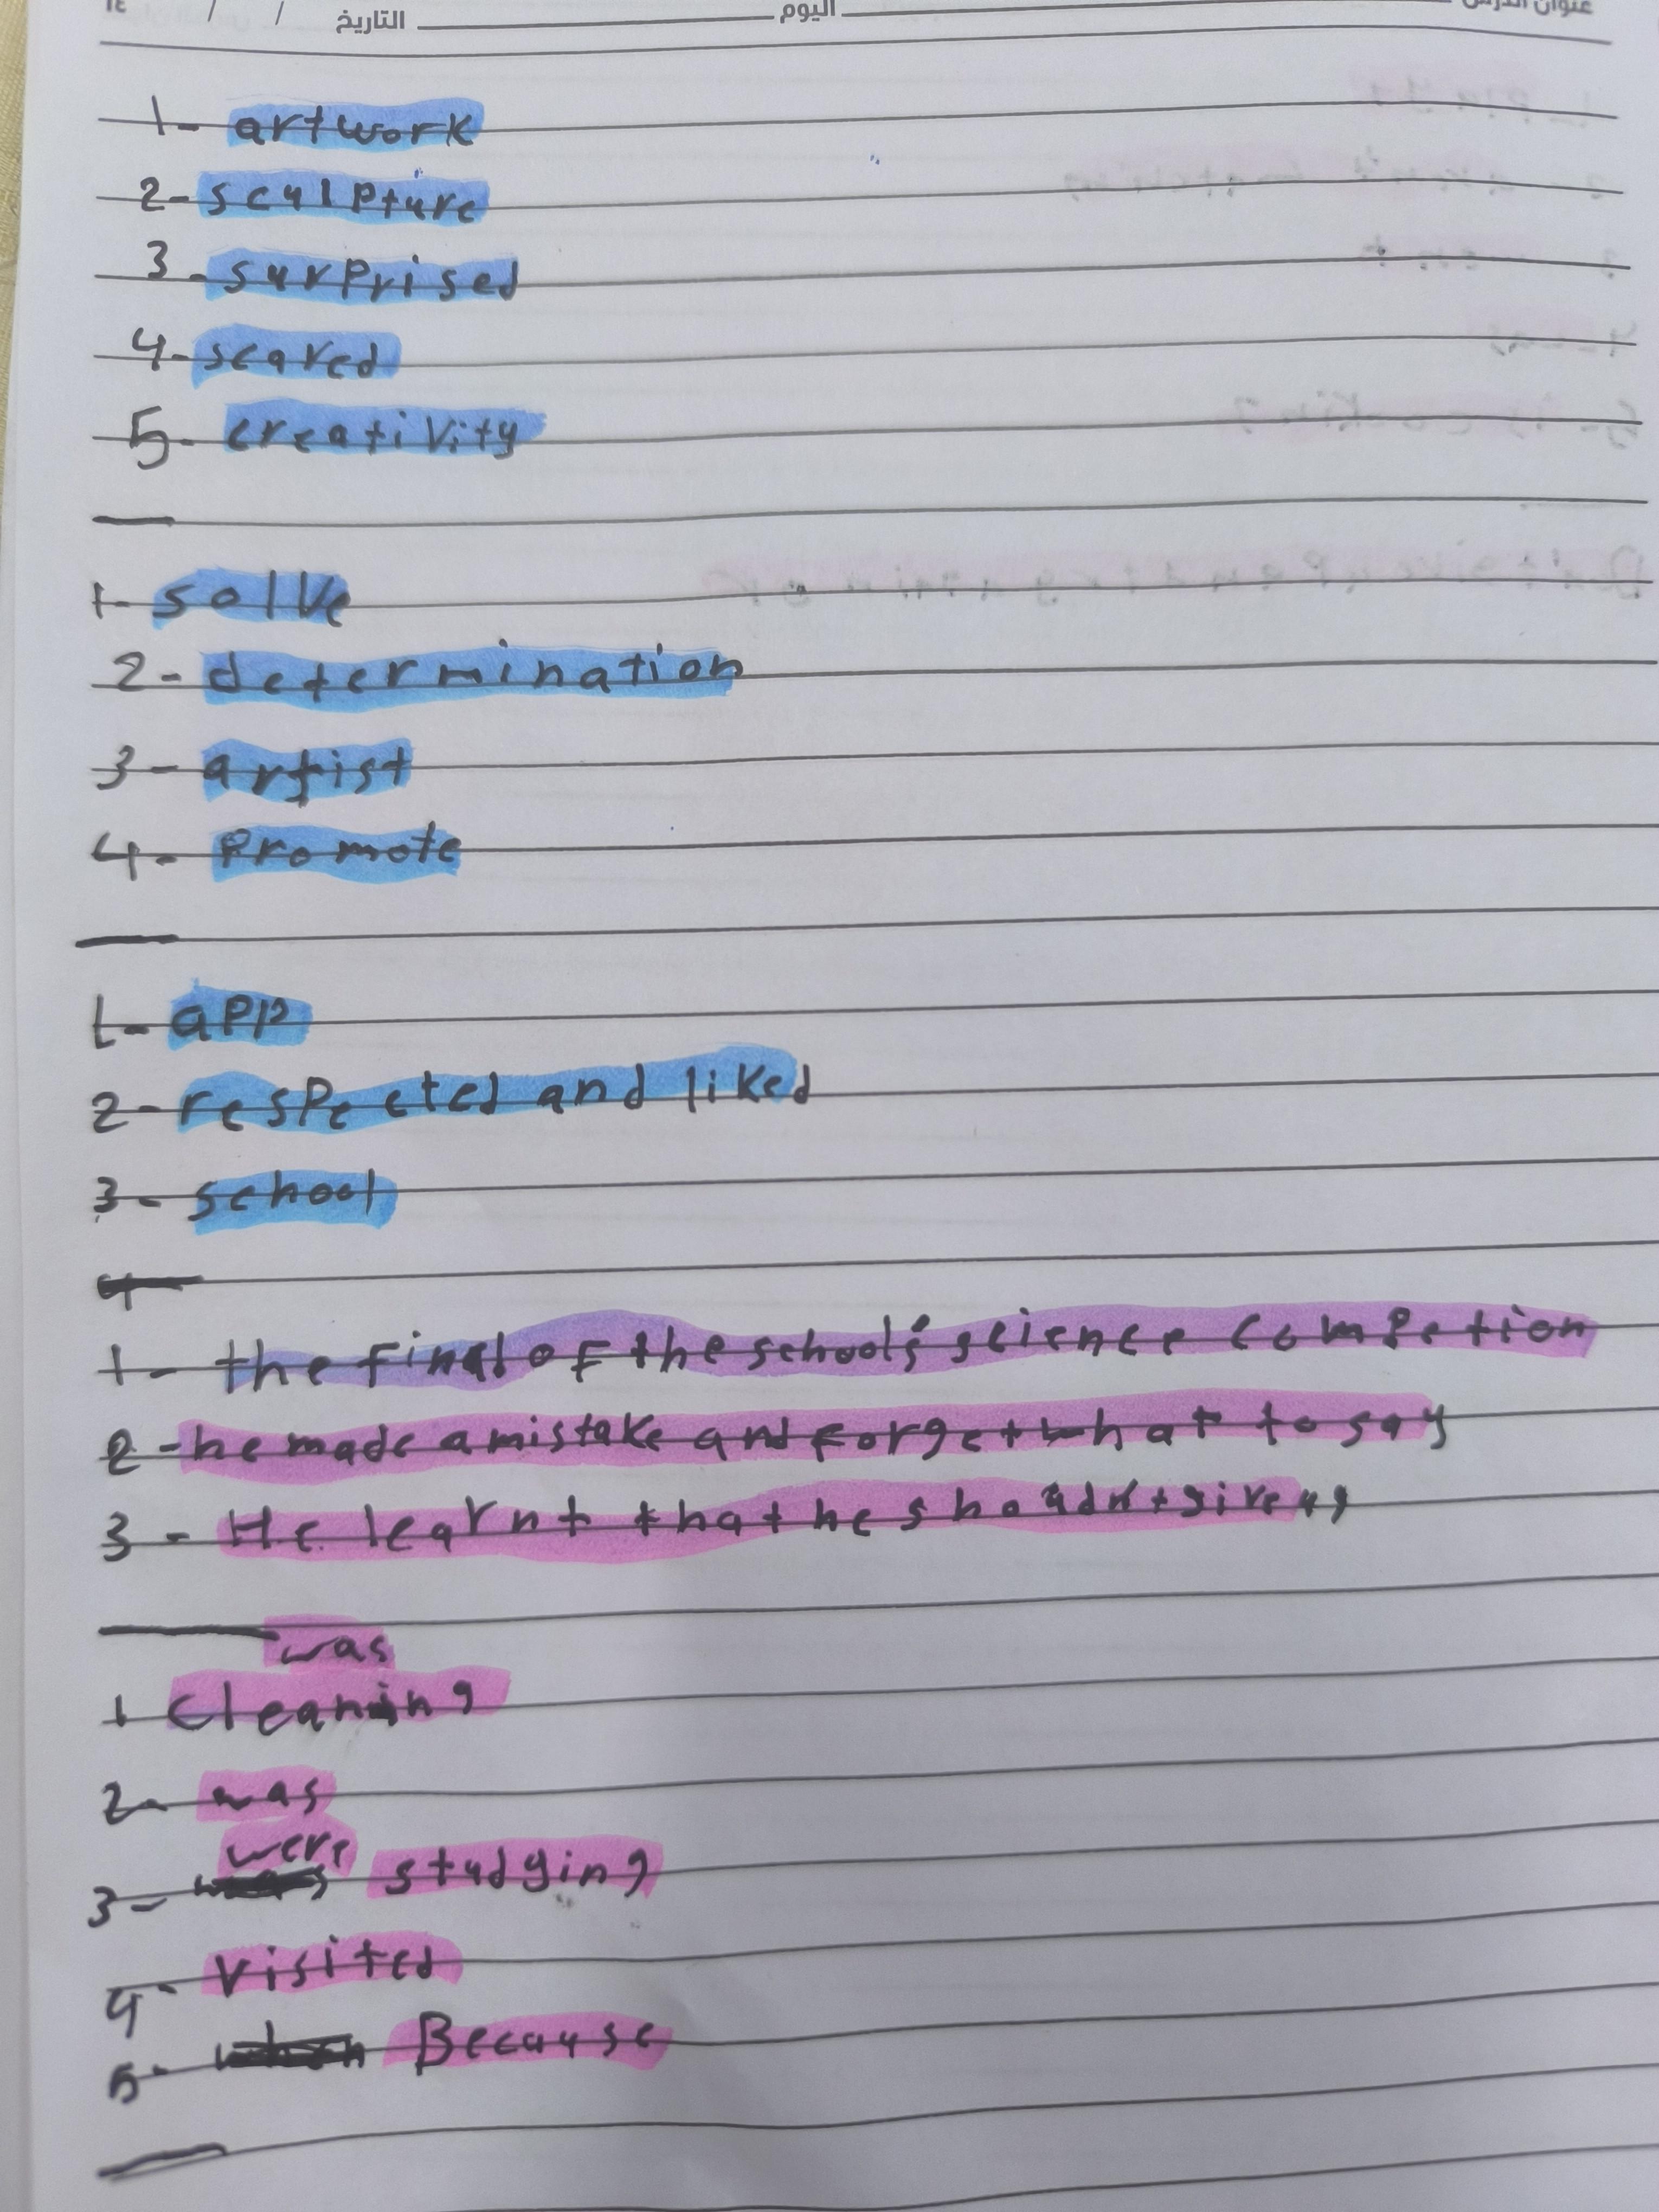 اليوم التاريخ / /
1- artwork
2- sculpture
3- surprised
4- scared
5- creativity
1- solve
2- determination
3- artist
4- promote
1- app
2- respected and liked
3- school
1- the final of the school's science competion
2- he made a mistake and forget what to say
3- He learnt that he
was
1 cleaning
2- was
were
3- studying
4- visited
5- Because